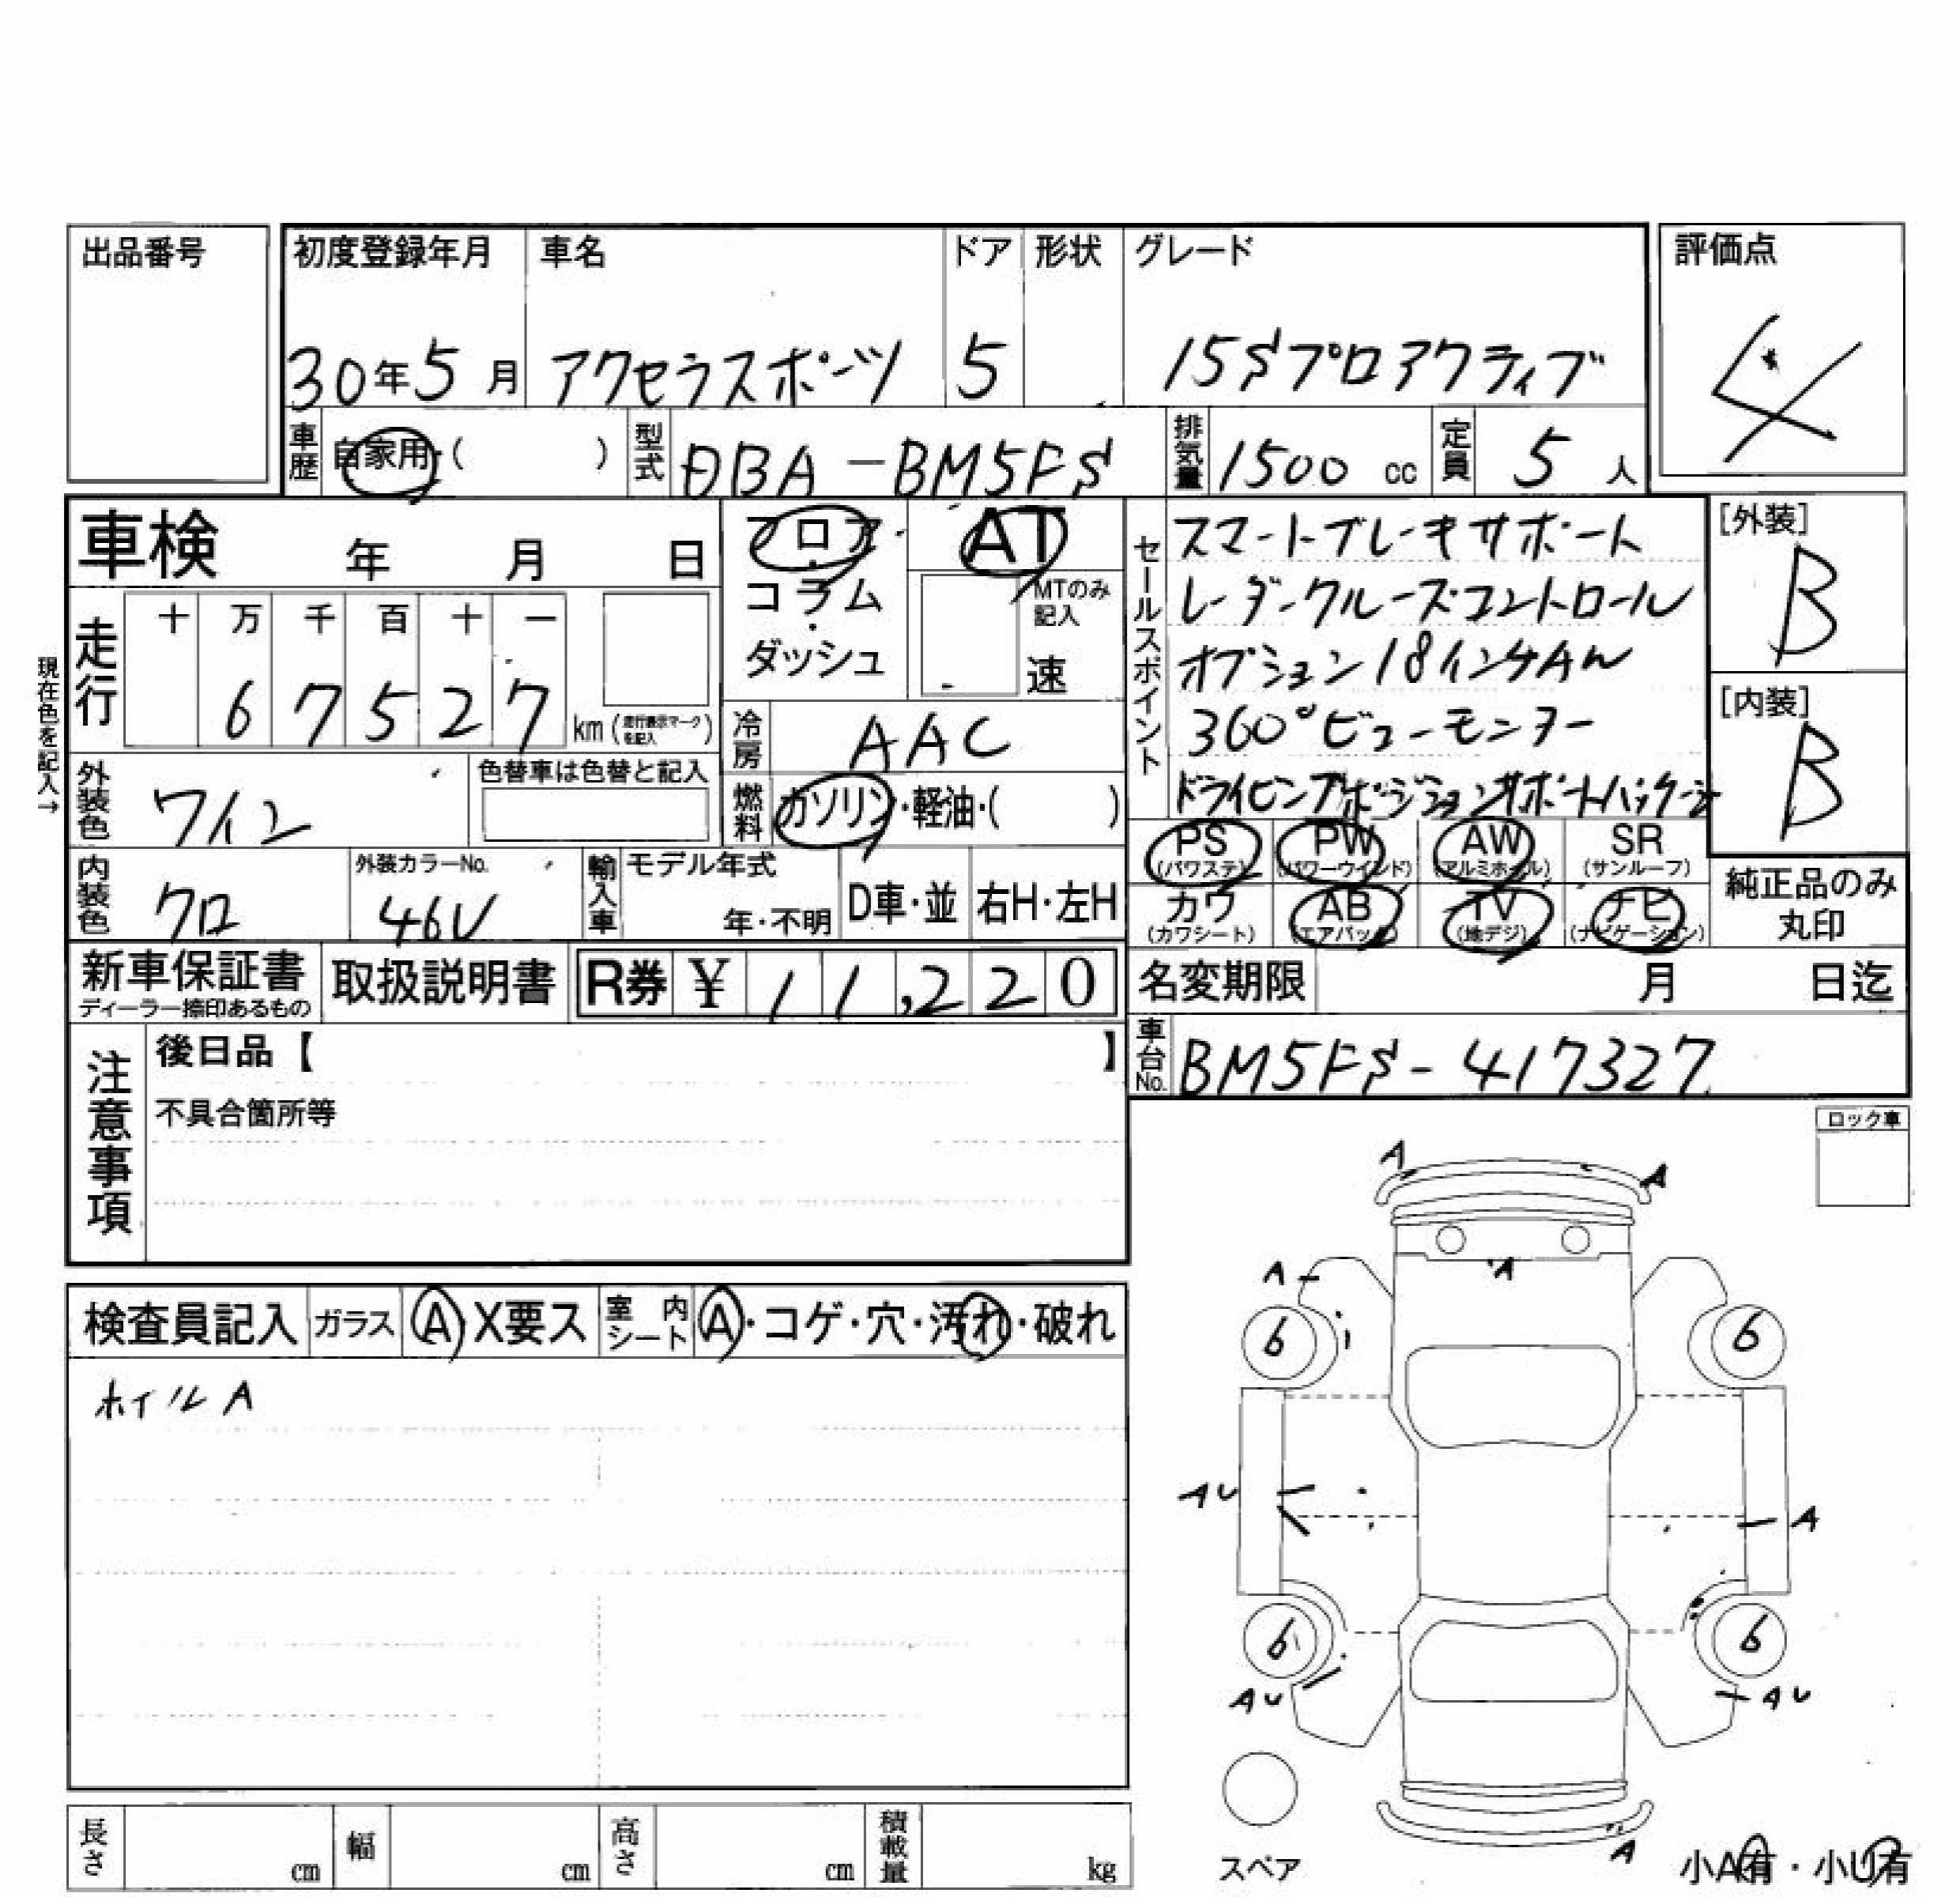 出品番号
初度登録年月 車名 ドア 形状 グレード
評価点
30年5月 アクセラスポーツ 5 15Sプロアクティブ
4
車歴 自家用・( ) 型式 DBA-BM5FS 排気量 1500 cc 定員 5 人
車検 年 月 日
フロア・コラム・ダッシュ
AT
MTのみ記入
速
セールスポイント
スマートブレーキサポート
レーダークルーズコントロール
オプション18インチAW
360°ビューモニター
ドライビングポジションサポートパッケージ
[外装]
B
[内装]
B
現在色を記入→
走行 十 万 千 百 十 一
6 7 5 2 7 km (走行表示マークを記入)
冷房 AAC
外装色 ワイン 色替車は色替と記入
燃料 ガソリン・軽油・( )
PS (パワステ) PW (パワーウインド) AW (アルミホイール) SR (サンルーフ)
カワ (カワシート) AB (エアバック) TV (地デジ) ナビ (ナビゲーション)
純正品のみ
丸印
内装色 クロ 外装カラーNo. 46V 輸入車 モデル年式 年・不明 D車・並 右H・左H
新車保証書 ディーラー捺印あるもの 取扱説明書 R券 ¥ 11,220
名変期限 月 日迄
車台No. BM5FS-417327
注意事項 後日品【 】
不具合箇所等
ロック車
A A
A A
6 6
検査員記入 ガラス A・X要ス 室内シート A・コゲ・穴・汚れ・破れ
ホイルA
AU A
6 6
AU AU
A
スペア
小A有・小U有
長さ cm 幅 cm 高さ cm 積載量 kg